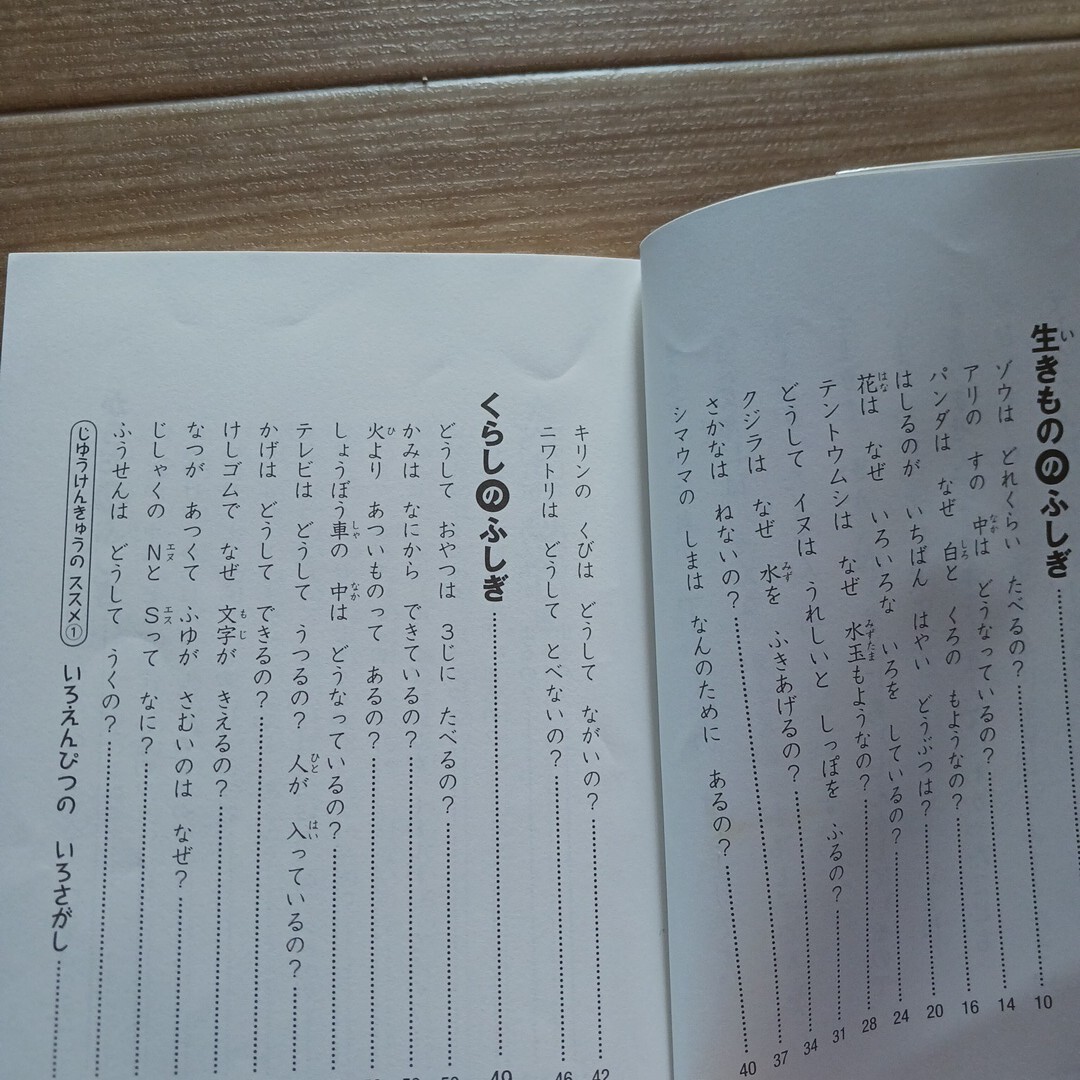 生きもののふしぎ
ゾウは どれくらい たべるの?……10
アリの すの 中は どうなっているの?……14
パンダは なぜ 白と くろの もようなの?……16
はしるのが いちばん はやい どうぶつは?……20
花は なぜ いろいろな いろを しているの?……24
テントウムシは なぜ 水玉もようなの?……28
どうして イヌは うれしいと しっぽを ふるの?……31
クジラは なぜ 水を ふきあげるの?……34
さかなは ねないの?……37
シマウマの しまは なんのために あるの?……40
キリンの くびは どうして ながいの?……42
ニワトリは どうして とべないの?……46
くらしのふしぎ……49
どうして おやつは 3じに たべるの?……
かみは なにから できているの?……
火より あついものって あるの?……
しょうぼう車の 中は どうなっているの?……
テレビは どうして うつるの? 人が 入っているの?……
かげは どうして できるの?……
けしゴムで なぜ 文字が きえるの?……
なつが あつくて ふゆが さむいのは なぜ?……
じしゃくの Nと Sって なに?……
ふうせんは どうして うくの?……
じゆうけんきゅうの ススメ① いろえんぴつの いろさがし……